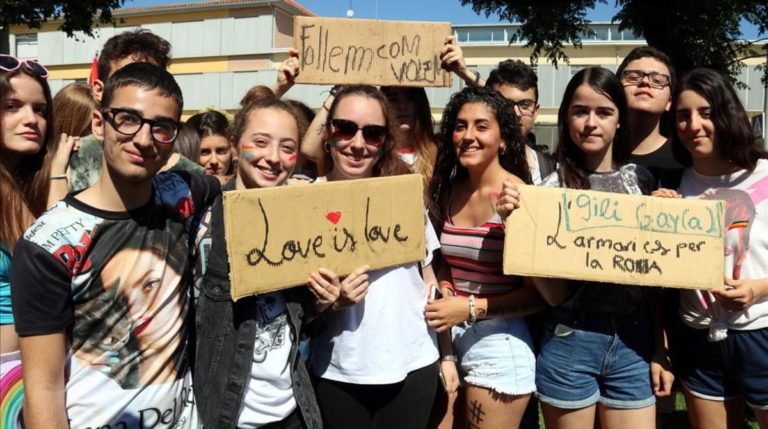 Follem com
VOLEM
Love is love
L'armari és per
la ROBA
M PETTY
Lana Del
#